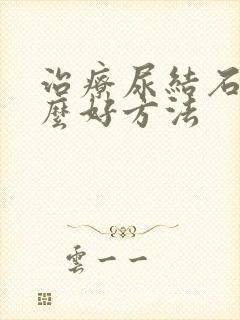 治療尿結石
麼好方法
雲一一